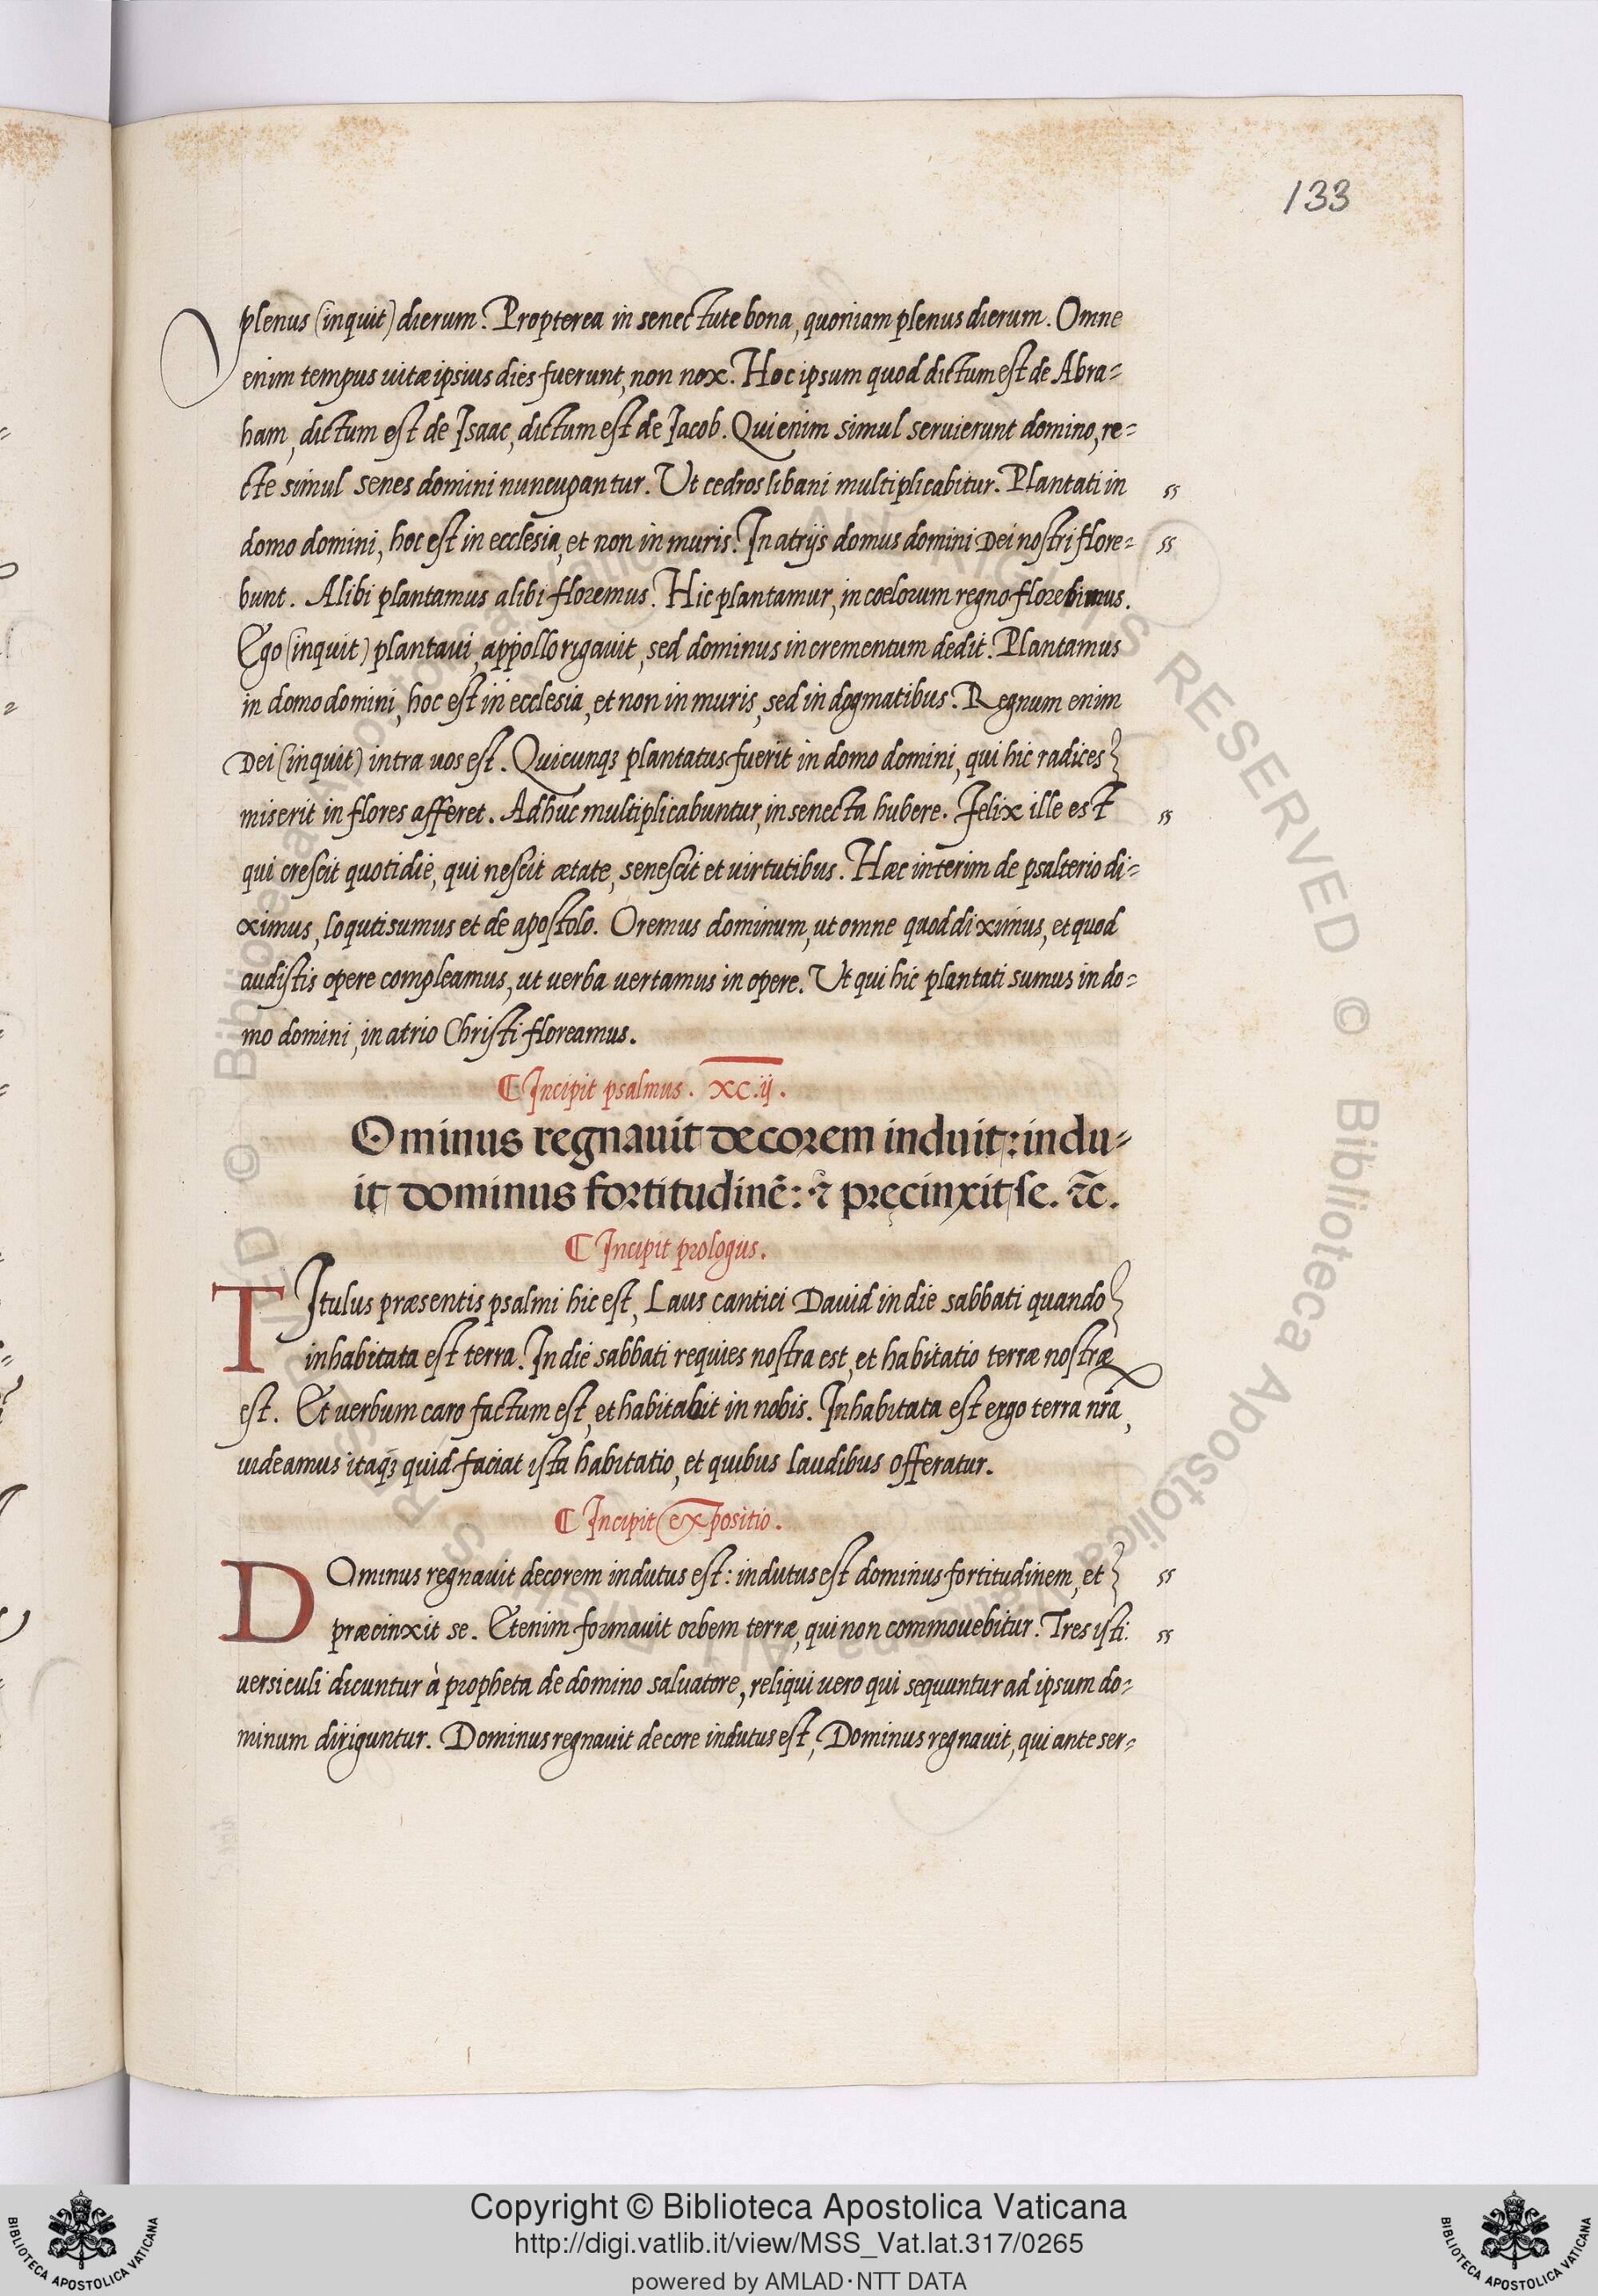 133
plenus (inquit) dierum. Propterea in senectute bona, quoniam plenus dierum. Omne
enim tempus uitæ ipsius dies fuerunt, non nox. Hoc ipsum quod dictum est de Abra-
ham, dictum est de Isaac, dictum est de Jacob. Qui enim simul seruierunt domino, re-
cte simul senes domini nuncupantur. Ut cedros libani multiplicabitur. Plantati in
domo domini, hoc est in ecclesia, et non in muris. In atrijs domus domini Dei nostri flore-
bunt. Alibi plantamus alibi floremus. Hic plantamur, in coelorum regno florebimus.
Ego (inquit) plantaui, appollo rigauit, sed dominus incrementum dedit. Plantamus
in domo domini, hoc est in ecclesia, et non in muris, sed in dogmatibus. Regnum enim
Dei (inquit) intra uos est. Quicunqꝫ plantatus fuerit in domo domini, qui hic radices
miserit in flores afferet. Adhuc multiplicabuntur, in senecta hubere. Felix ille est
qui crescit quotidie, qui nescit ætate, senescit et uirtutibus. Hæc interim de psalterio di-
ximus, loquti sumus et de apostolo. Oremus dominum, ut omne quod diximus, et quod
audistis opere compleamus, ut uerba uertamus in opere. Ut qui hic plantati sumus in do-
mo domini, in atrio Christi floreamus.
¶ Incipit psalmus. xc.ij.
Ominus regnauit decorem induit: indu-
it dominus fortitudinē: ⁊ pręcinxit se. ⁊c.
¶ Incipit prologus.
TItulus præsentis psalmi hic est, Laus cantici Dauid in die sabbati quando
inhabitata est terra. In die sabbati requies nostra est, et habitatio terræ nostræ
est. Et uerbum caro factum est, et habitabit in nobis. Inhabitata est ergo terra nr̃a,
uideamus itaqꝫ quid faciat ista habitatio, et quibus laudibus offeratur.
¶ Incipit expositio.
DOminus regnauit decorem indutus est: indutus est dominus fortitudinem, et
præcinxit se. Etenim formauit orbem terræ, qui non commouebitur. Tres isti
uersiculi dicuntur à propheta de domino saluatore, reliqui uero qui sequuntur ad ipsum do-
minum diriguntur. Dominus regnauit decore indutus est, Dominus regnauit, qui ante ser-
Copyright © Biblioteca Apostolica Vaticana
http://digi.vatlib.it/view/MSS_Vat.lat.317/0265
powered by AMLAD·NTT DATA
BIBLIOTECA APOSTOLICA VATICANA
BIBLIOTECA APOSTOLICA VATICANA